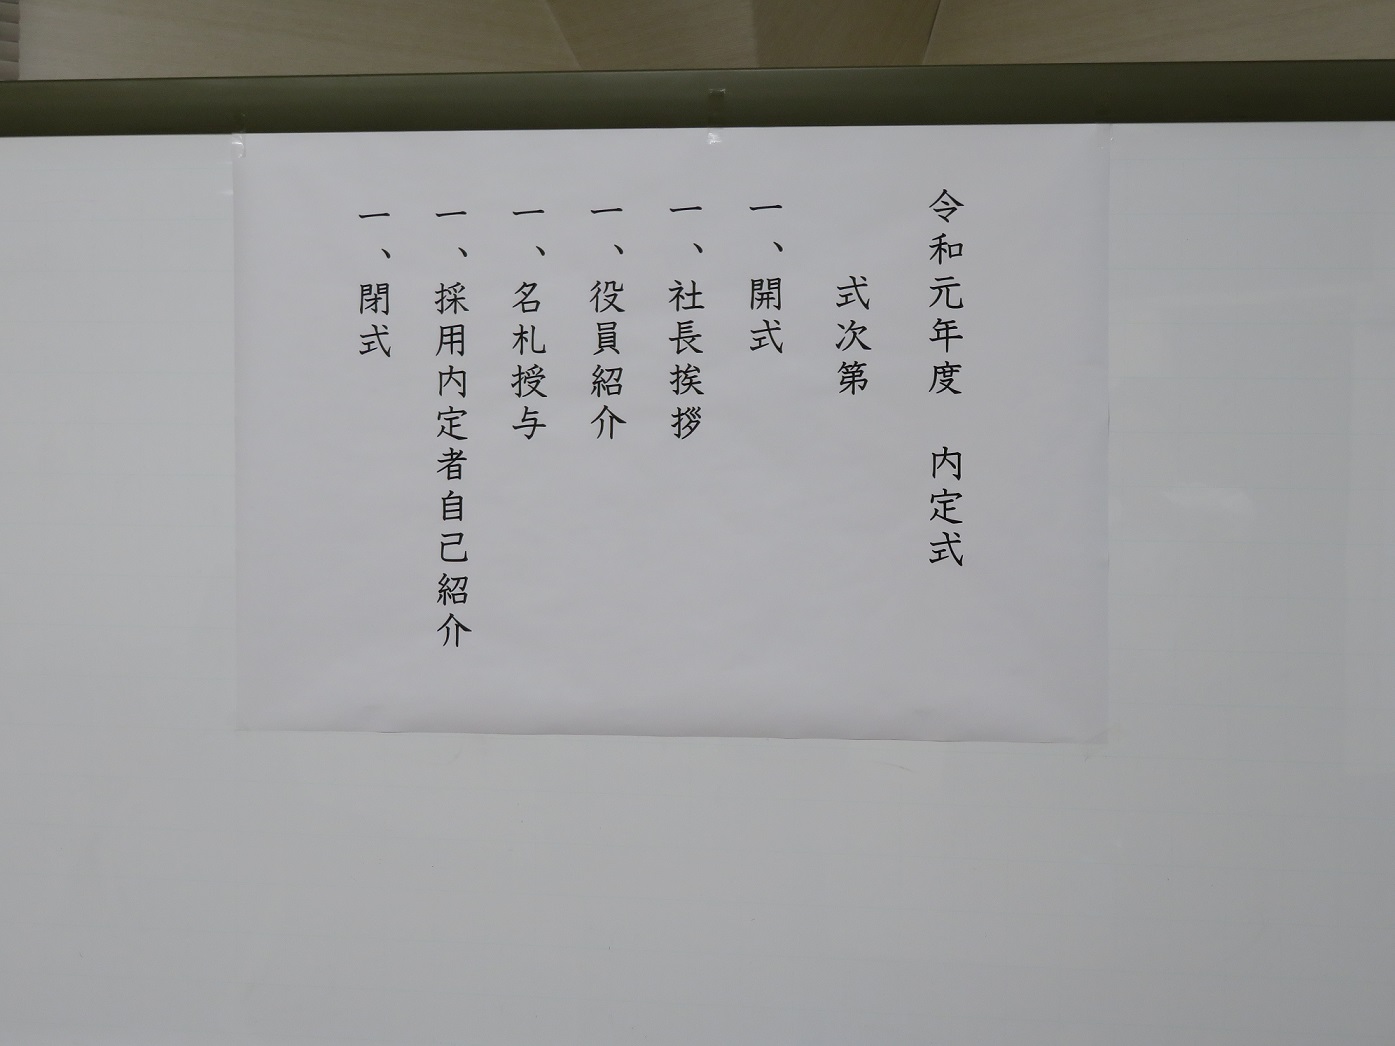 令和元年度　内定式
式次第
一、開式
一、社長挨拶
一、役員紹介
一、名札授与
一、採用内定者自己紹介
一、閉式